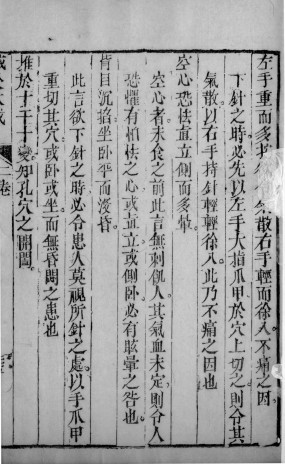 左手重而多按欲令氣散右手輕而徐入不痛之因
下針之時必先以左手大指爪甲於穴上切之則令其
氣散以右手持針輕輕徐入此乃不痛之因也
空心恐怯直立側而多暈
空心者未食之前此言無刺飢人其氣血未定則令人
恐懼有怕怯之心或直立或側卧必有眩暈之咎也
背目沉掐坐卧平而沒昏
此言欲下針之時必令患人莫視所針之處以手爪甲
重切其穴或卧或坐而無昏悶之患也
推於十干十變知孔穴之開闔
大成
二卷